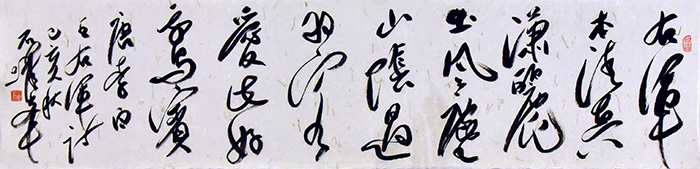 右軍
本清真
瀟灑
出風塵
山陰遇
羽客
愛此好
鵝賓
唐李白
王右軍詩
己亥秋